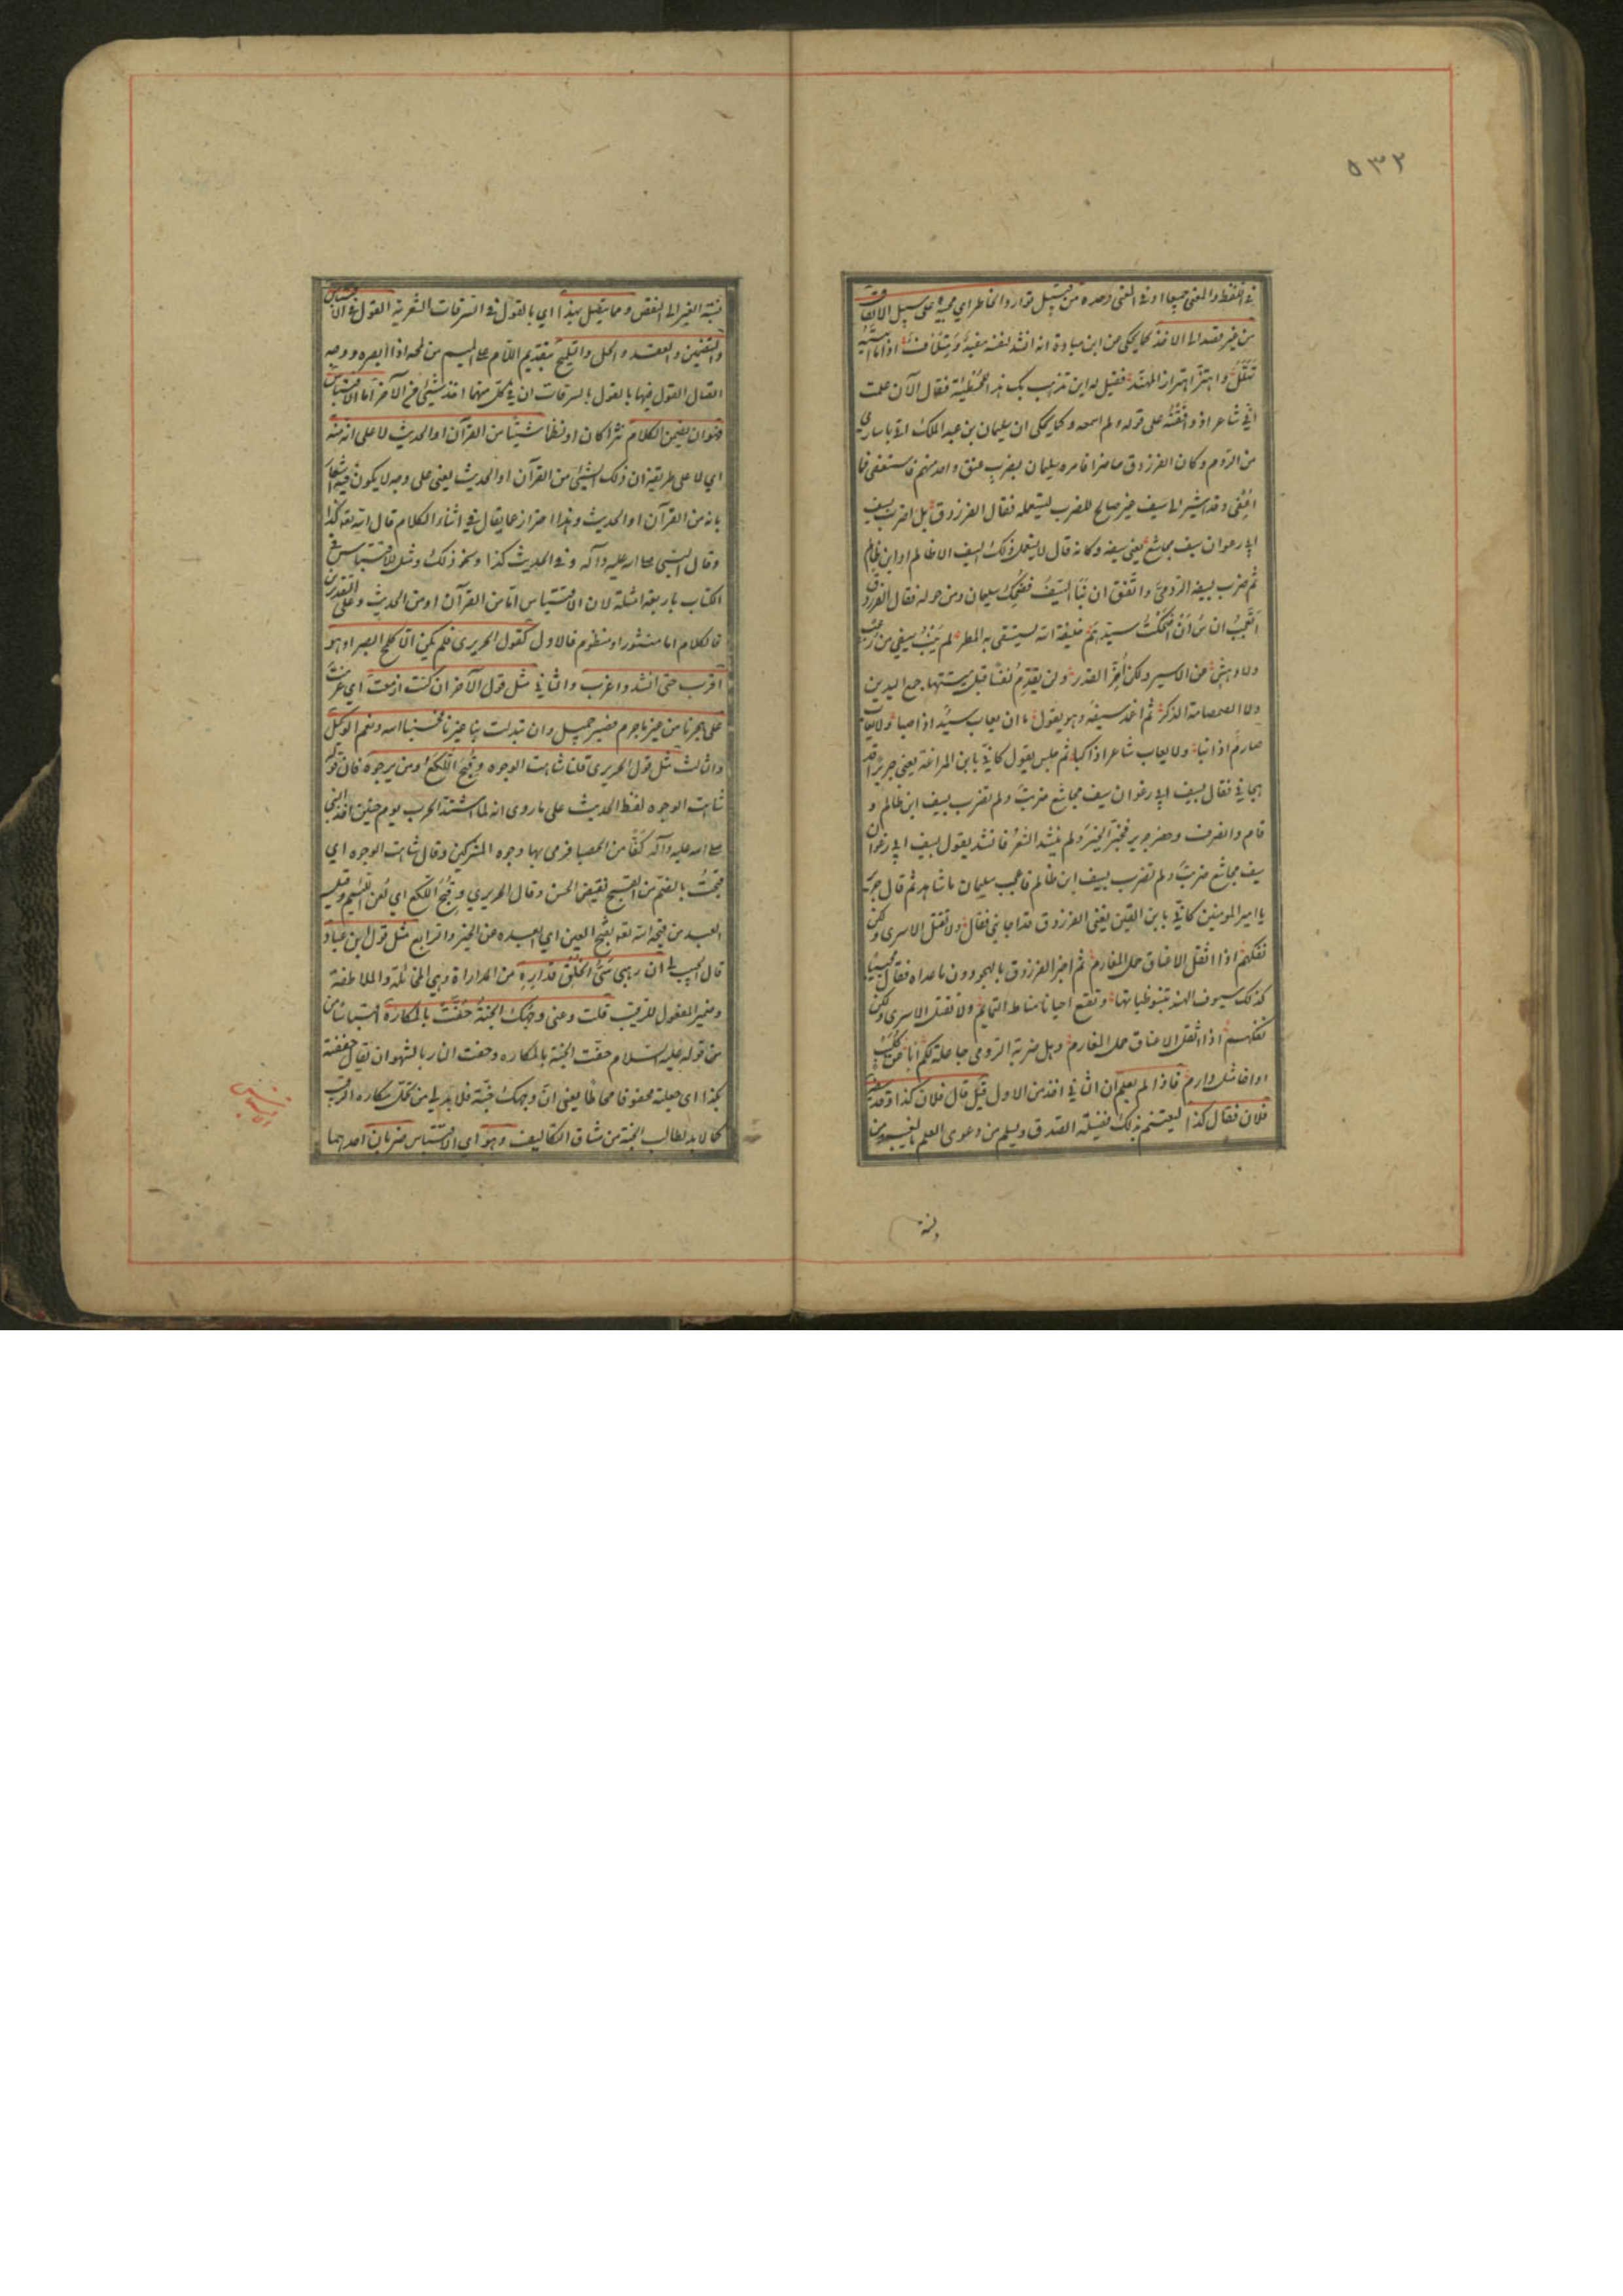 ٥٣٢
في اللفظ والمعنى جميعا او في المعنى وحده من قبيل توارد الخاطر اي مجيئه على سبيل الاتفاق
من غير قصد الى الاخذ كما يحكى عن ابن ميادة انه انشد لنفسه مفيد ومتلاف اذا ما اتيته
تهلل واهتز اهتزاز المهند فقيل له اين تذهب بك هذا للحطيئة فقال الآن علمت
اني شاعر اذ وافقته على قوله ولم اسمعه وكما يحكى ان سليمان بن عبد الملك اتي باسارى
من الروم وكان الفرزدق حاضرا فامره سليمان بضرب عنق واحد منهم فاستعفى فما
اعفي وقد اشير الى سيف غير صالح للضرب ليستعمله فقال الفرزدق بل اضرب بسيف
ابي رغوان سيف مجاشع يعني سيفه وكانه قال لا يستعمل ذلك السيف الا ظالم او ابن ظالم
ثم ضرب بسيفه الرومي واتفق ان نبا السيف فضحك سليمان ومن حوله فقال الفرزدق
ايعجب الناس ان اضحكت سيدهم خليفة الله يستسقى به المطر لم ينب سيفي من رعب
ولا دهش عن الاسير ولكن اخر القدر ولن يقدم نفسا قبل ميتتها جمع اليدين
ولا الصمصامة الذكر ثم اغمد سيفه وهو يقول ما ان يعاب سيد اذا صبا ولا يعاب
صارم اذا نبا ولا يعاب شاعر اذا كبا ثم جلس يقول كاني بابن المراغة يعني جريرا قد
هجاني فقال بسيف ابي رغوان سيف مجاشع ضربت ولم تضرب بسيف ابن ظالم و
قام وانصرف وحضر جرير فخبر الخبر ولم ينشد الشعر فانشد يقول بسيف ابي رغوان
سيف مجاشع ضربت ولم تضرب بسيف ابن ظالم فاعجب سليمان ما شاهد ثم قال جرير
يا امير المومنين كاني بابن القين يعني الفرزدق قد اجابني فقال ولا نقتل الاسرى ولكن
نفكهم اذا اثقل الاعناق حمل المغارم ثم اخبر الفرزدق بالهجو دون ما عداه فقال مجيبا
كذلك سيوف الهند تنبو ظباتها وتقطع احيانا مناط التمائم ولا نقتل الاسرى ولكن
نفكهم اذا اثقل الاعناق حمل المغارم وهل ضربة الرومي جاعلة لكم ابا عن كليب
او اخا مثل دارم فاذا لم يعلم ان الثاني اخذ من الاول قيل قال فلان كذا وقد سبقه اليه
فلان فقال كذا ليغتنم بذلك فضيلة الصدق ويسلم من دعوى العلم بالغيب ومن
نسبة الغير الى النقص ومما يتصل بهذا اي بالقول في السرقات الشعرية القول في الاقتباس
والتضمين والعقد والحل والتلميح بتقديم اللام على الميم من لمحه اذا ابصره ووجه
اتصال القول فيها بالقول بالسرقات ان في كل منهما اخذ شيئ من الآخر اما الاقتباس
فهو ان يضمن الكلام نثرا كان او نظما شيئا من القرآن او الحديث لا على انه منه
اي لا على طريقة ان ذلك الشيئ من القرآن او الحديث يعني على وجه لا يكون فيه اشعار
بانه من القرآن او الحديث وهذا احتراز عما يقال في اثناء الكلام قال الله تعالى كذا
وقال النبي صلى الله عليه وآله وفي الحديث كذا ونحو ذلك ومثل للاقتباس في
الكتاب باربعة امثلة لان الاقتباس اما من القرآن او من الحديث وعلى التقديرين
فالكلام اما منثور او منظوم فالاول كقول الحريري فلم يكن الا كلمح البصر او هو
اقرب حتى انشد واغرب والثاني مثل قول الآخر ان كنت ازمعت اي عزمت
على هجرنا من غير ما جرم فصبر جميل وان تبدلت بنا غيرنا فحسبنا الله ونعم الوكيل
والثالث مثل قول الحريري قلنا شاهت الوجوه وقبح اللكع ومن يرجوه فان قوله
شاهت الوجوه لفظ الحديث على ما روى انه لما اشتد الحرب يوم حنين اخذ النبي
صلى الله عليه وآله كفا من الحصبا فرمى بها وجوه المشركين وقال شاهت الوجوه اي
قبحت بالضم من القبح نقيض الحسن وقال الحريري وقبح اللكع اي لعن اللئيم وقيل
العبد من قبحه الله تعالى بفتح العين اي ابعده عن الخير والرابع مثل قول ابن عباد
قال لي ان رقيبي سيئ الخلق فداره من المداراة وهي المخاتلة والملاطفة
وضمير المفعول للرقيب قلت دعني وجهك الجنة حفت بالمكاره اقتباسا
من قوله عليه السلام حفت الجنة بالمكاره وحفت النار بالشهوات يقال حففته
بكذا اي جعلته محفوفا محاطا يعني ان وجهك جنة فلا بد لي من تحمل مكاره الرقيب
كما لا بد لطالب الجنة من مشاق التكاليف وهو اي الاقتباس ضربان احدهما